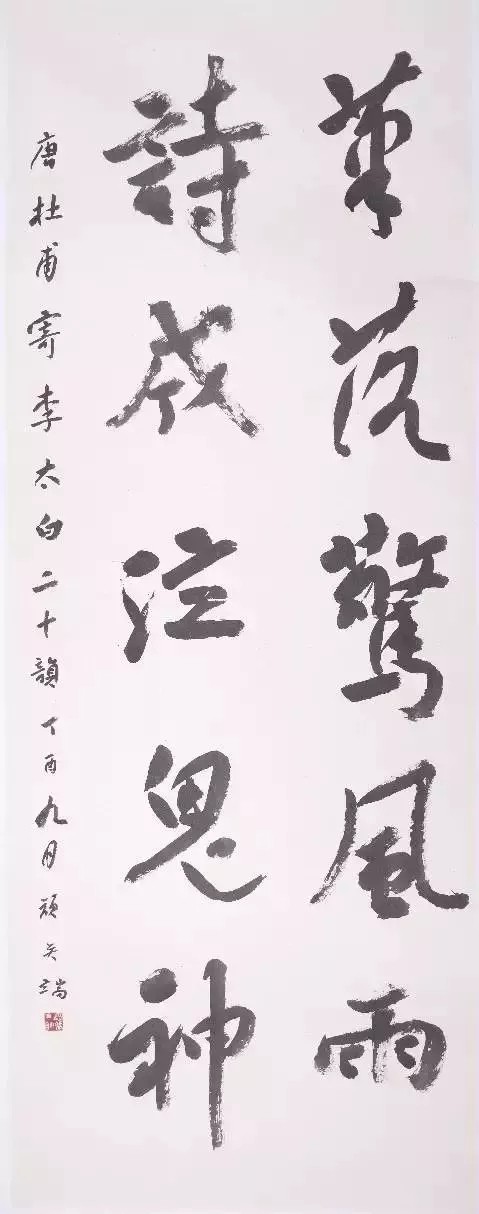 筆落驚風雨
詩成泣鬼神
唐杜甫寄李太白二十韻 丁酉九月 顾美端